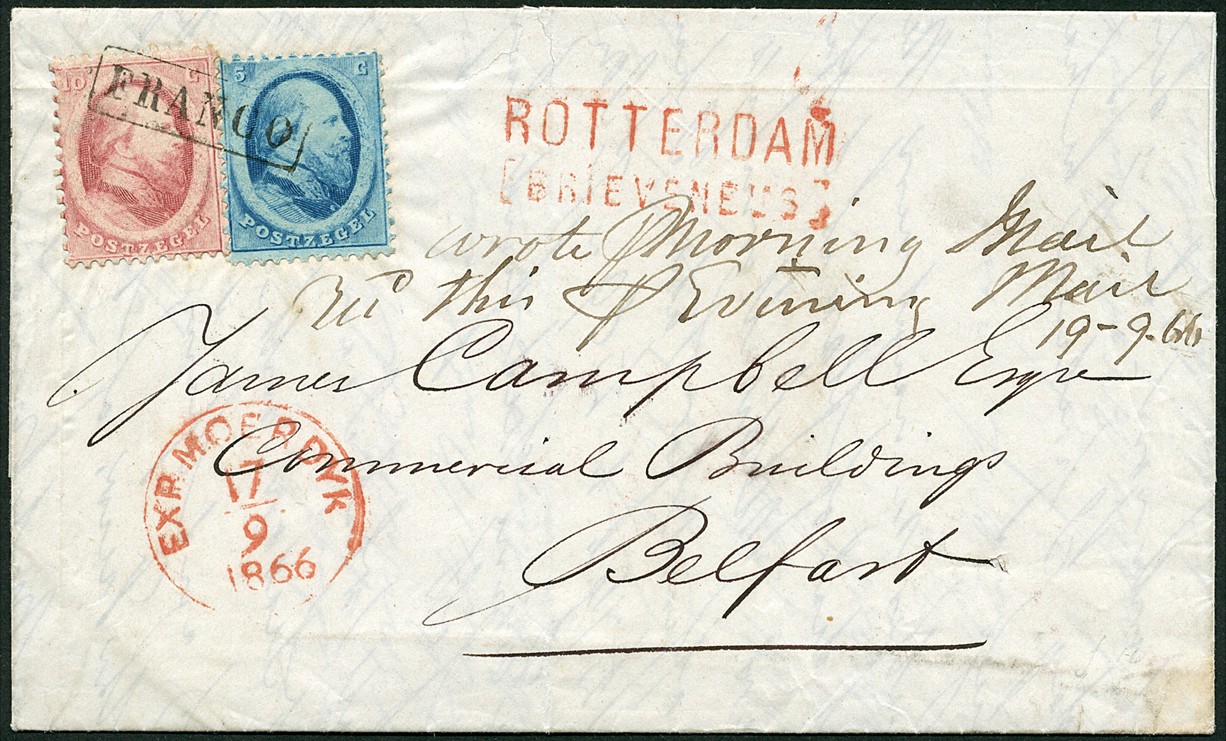 10 C
5 C
FRANCO
POSTZEGEL
POSTZEGEL
ROTTERDAM
[BRIEVENBUS]
wrote Morning Mail
this Evening Mail
19-9-66
James Campbell Esqre
Commercial Buildings
Belfast
EXP. MOERDYK
17
9
1866